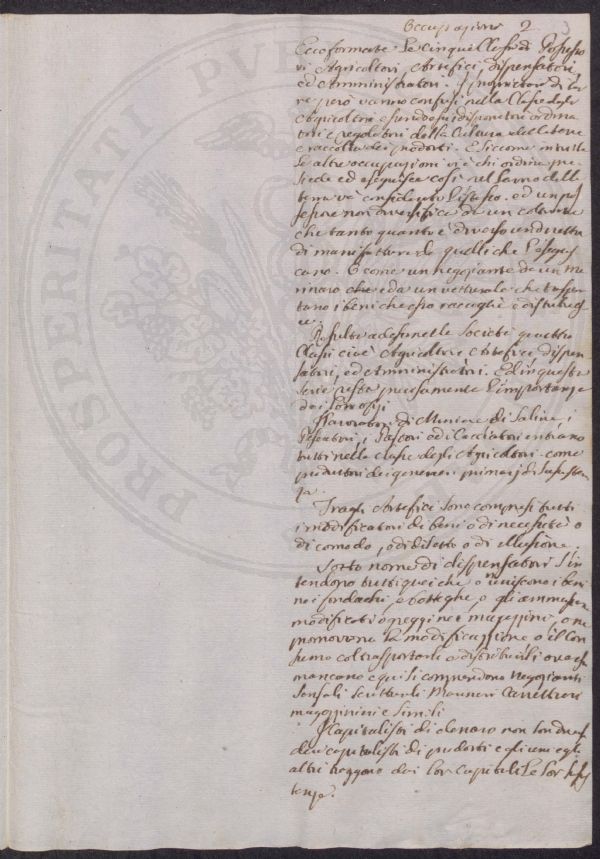 Occupazione 2 3
Ecco formate le cinque Classi di Possesso
ri Agricoltori, Artefici, dispensatori,
ed Amministratori. I proprietari di ter
re però vanno confusi nella Classe degli
Agricoltori essendo essi dispositori ordina
tori e regolatori della Cultura delle terre
e raccolta dei prodotti. E siccome in tutte
le altre occupazioni vi è chi ordina pre
siede ed eseguisce così nel lavoro delle
terre và considerato l'istesso. ed un pos
sessore non diversifica da un colono
che tanto quanto è diverso un direttore
di manifatture da quelli che l'eseguis
cono. O come un negoziante da un ma
rinaro che o da un vetturale che traspor
tano i beni che esso raccoglie e distribuis
ce.
Risulta adesso nelle Società quattro
Classi cioè Agricoltori Artefici, dispen
satori, ed Amministratori. Ed in questa
serie resta precisamente l'importanza
dei
I lavoratori di Miniere di Saline, i
Pescatori, i Pastori ed i Cacciatori entrano
tutti nella classe degli Agricoltori come
produttori dei generi primarj di sussisten
za.
Tra gli Artefici sono compresi tutti
i modificatori di beni o di necessità o
di comodo, o di diletto o di illusione.
Sotto nome di dispensatori s'in
tendono tutti quei che o riuniscono i beni
nei fondachi, e botteghe, o gli ammassano
modificati o greggi nei magazzini, o ne
promovono la modificazione o il con
sumo col trasportarli o distribuirli ove essi
mancano e qui si comprendono negozianti
Sensali Scritturali Marinari Carrettieri
magazzinieri e simili
I Capitalisti di denaro non son diversi
dai capitalisti di prodotti e gli uni e gli
altri traggono dai lor Capitali la lor sussis
tenza.
PROSPERITATI PVBL